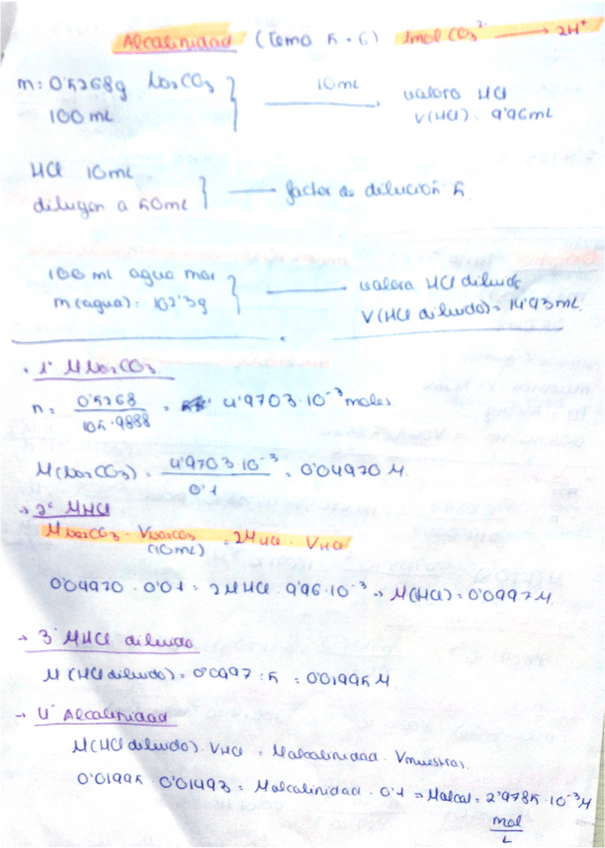 Alcalinidad (Tema 5.6) 1mol CO3²⁻ → 2H⁺
m: 0'5268g Na2CO3 10mL valora HCl
100 mL V(HCl): 9'96mL
HCl 10mL
diluyen a 50mL factor de dilución 5
100 ml agua mar valora HCl diluido
m(agua): 102'3g V(HCl diluido)= 14'93mL
• 1º M Na2CO3
n: 0'5268 / 105'9888 = 4'9703·10⁻³ moles
M(Na2CO3) = 4'9703·10⁻³ / 0'1 = 0'04970 M.
→ 2º MHCl
M Na2CO3 · V Na2CO3 = 2 M HCl · V HCl
(10mL)
0'04970 · 0'01 = 2 MHCl · 9'96·10⁻³ → M(HCl) = 0'0997 M.
→ 3º MHCl diluido
M (HCl diluido) = 0'0997 : 5 = 0'01995 M.
→ 4º Alcalinidad
M(HCl diluido) · VHCl = Malcalinidad · Vmuestras.
0'01995 · 0'01493 = Malcalinidad · 0'1 → Malcal = 2'9785·10⁻³ M
mol
L